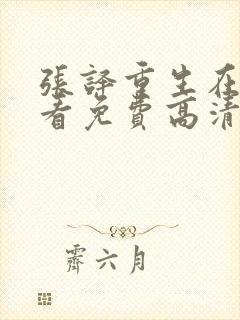 張譯重生在
看免費高清
霽六月